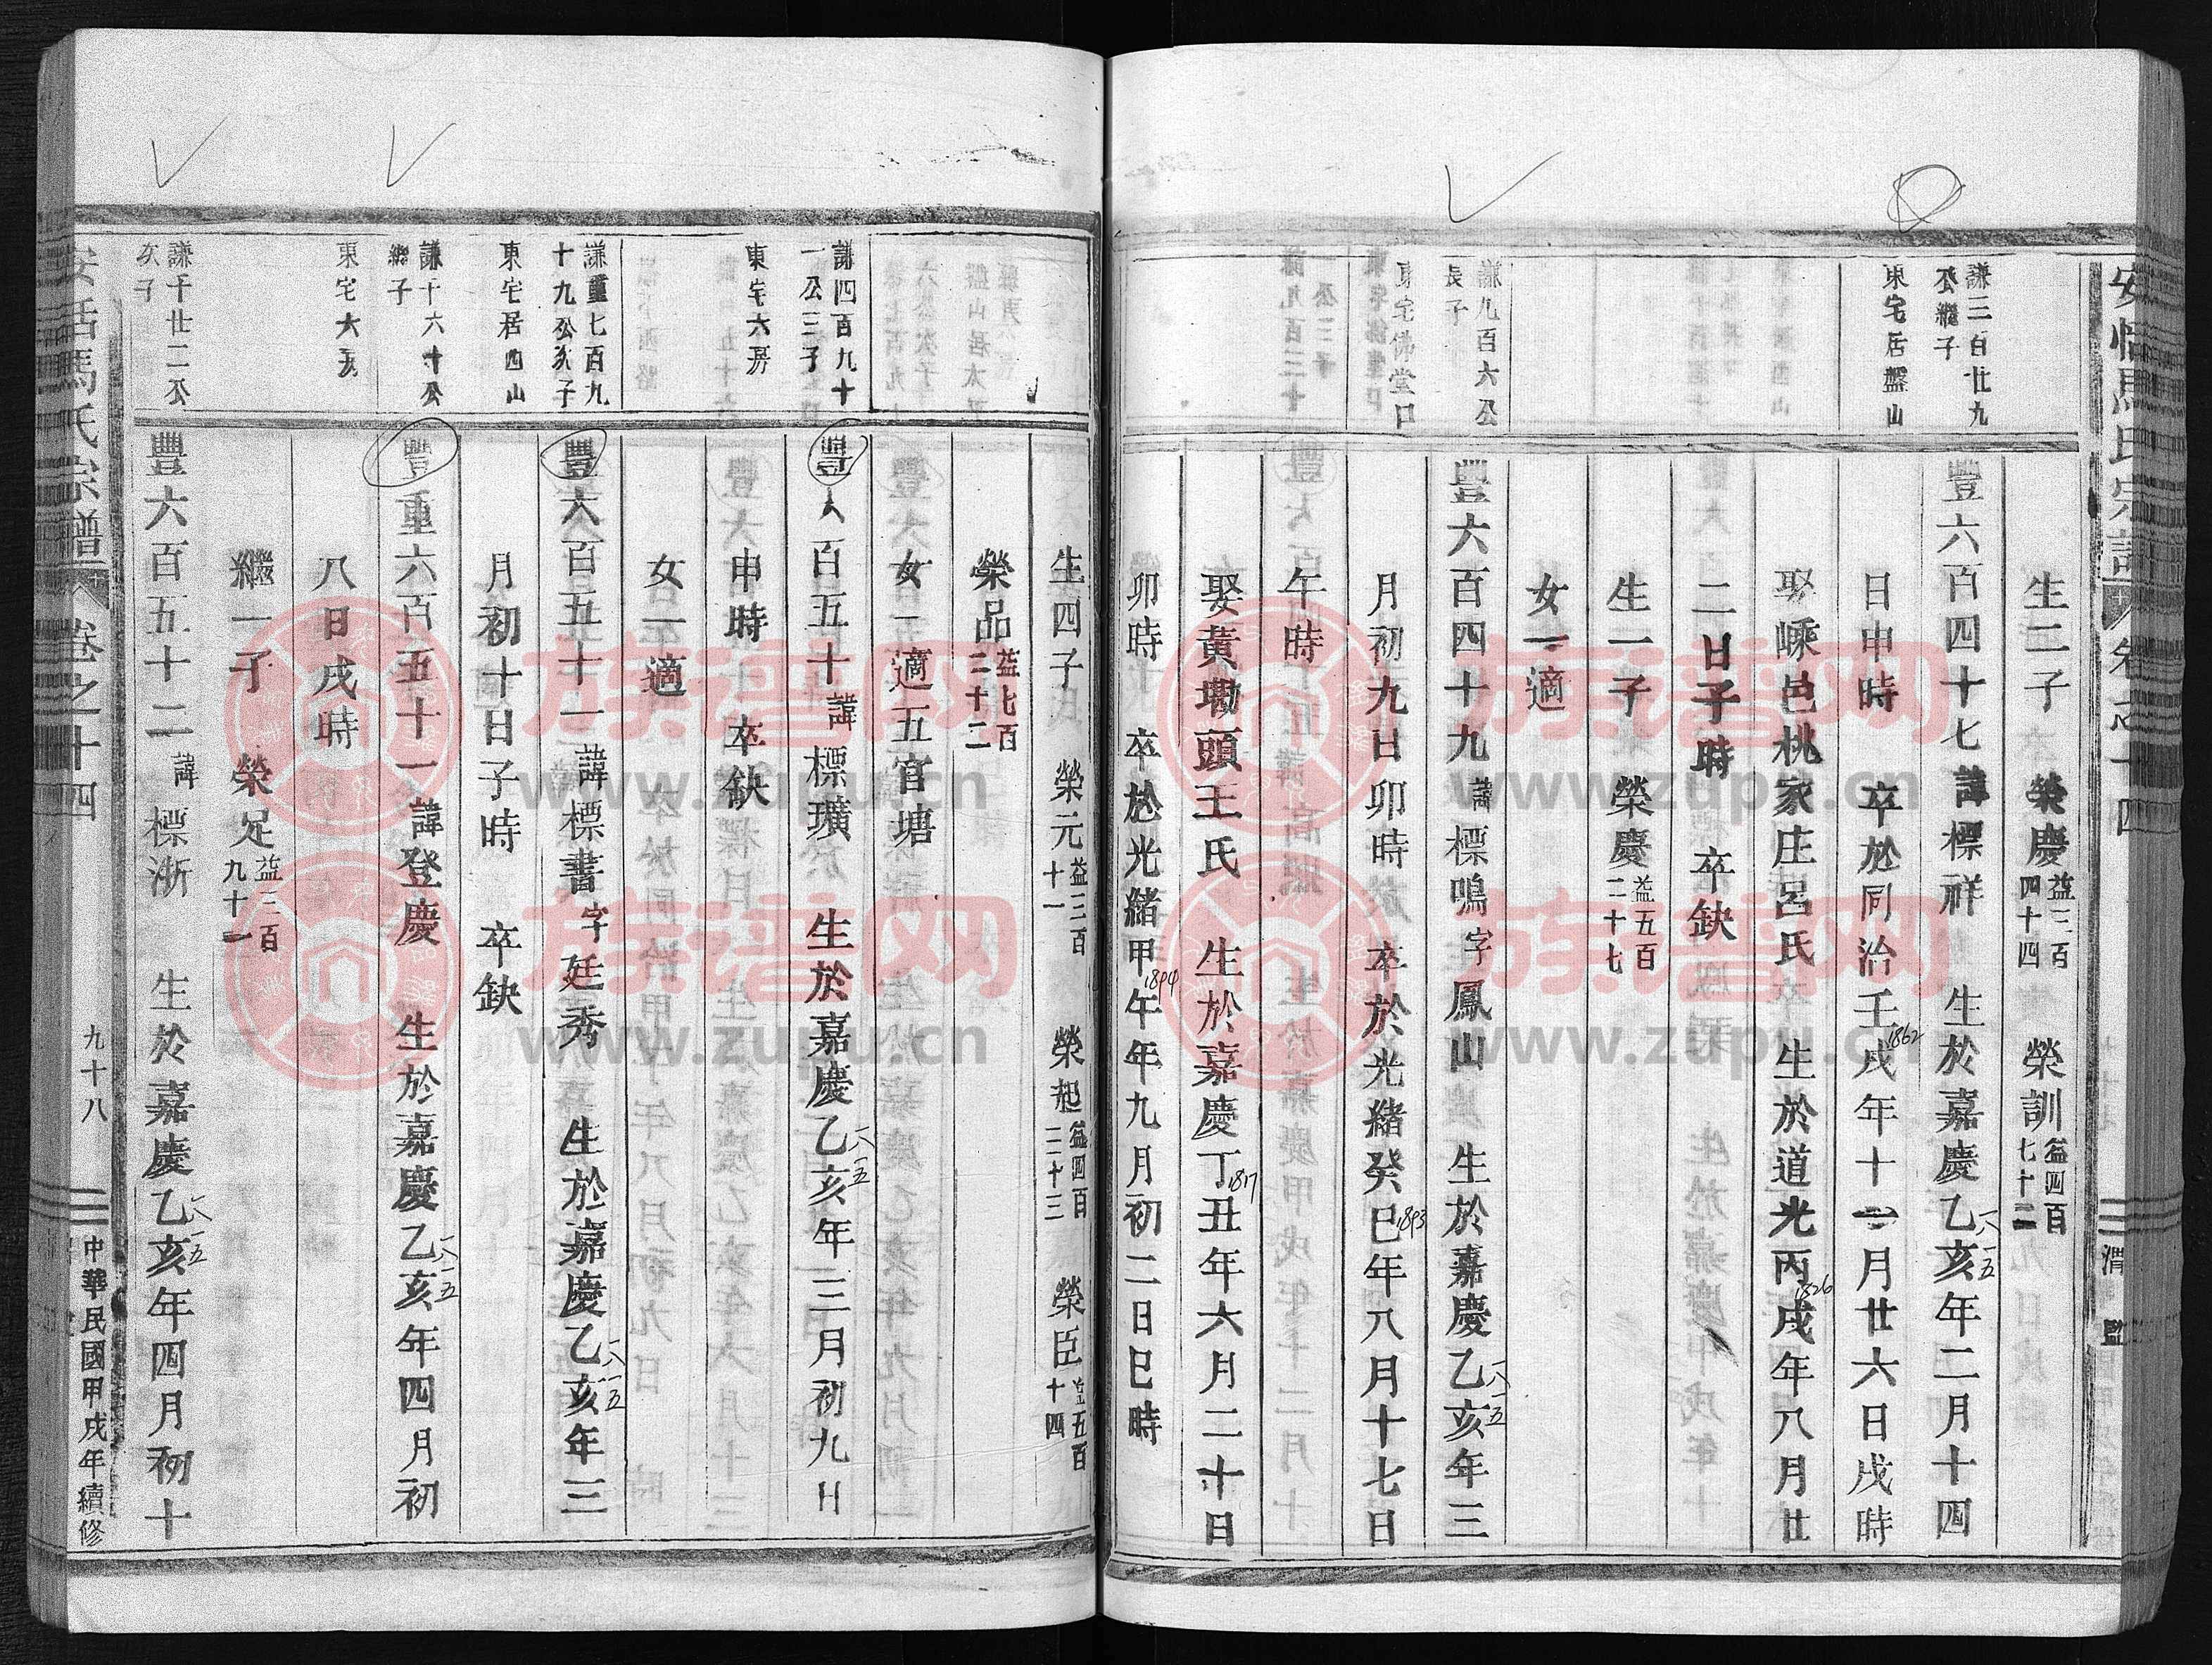 生二子 榮慶益三百四十四 榮訓益四百七十二
謙三百廿九公繼子
豐六百四十七諱標祥 生於嘉慶乙亥年二月十四
一八一五
東宅居盤山
日申時 卒於同治壬戌年十一月廿六日戌時
1862
娶嵊邑桃家庄呂氏 生於道光丙戌年八月廿
1826
二日子時 卒缺
生一子 榮慶益五百二十七
女一適
謙九百六公長子
豐六百四十九諱標鳴字鳳山 生於嘉慶乙亥年三
一八一五
東宅佛堂口
月初九日卯時 卒於光緒癸巳年八月十七日
1893
午時
娶黃墈頭王氏 生於嘉慶丁丑年六月二十日
1817
卯時 卒於光緒甲午年九月初二日巳時
1894
生四子 榮元益三百十一 榮起益四百二十三 榮臣益五百十四
榮品益七百二十二
女一適五官塘
謙四百九十一公三子
豐六百五十諱標璜 生於嘉慶乙亥年三月初九日
一八一五
東宅六房
申時 卒缺
女一適
謙重七百九十九公次子
豐六百五十一諱標書字廷秀 生於嘉慶乙亥年三
一八一五
東宅居四山
月初十日子時 卒缺
謙十六十公繼子
豐重六百五十一諱登慶 生於嘉慶乙亥年四月初
一八一五
東宅六房
八日戌時
繼一子 榮足益三百九十一
謙千廿二公次子
豐六百五十二諱標浙 生於嘉慶乙亥年四月初十
一八一五
安恬馬氏宗譜 卷之十四 九十八 中華民國甲戌年續修
族谱网
www.zupu.cn
族谱网
www.zupu.cn
族谱网
www.zupu.cn
族谱网
www.zupu.cn